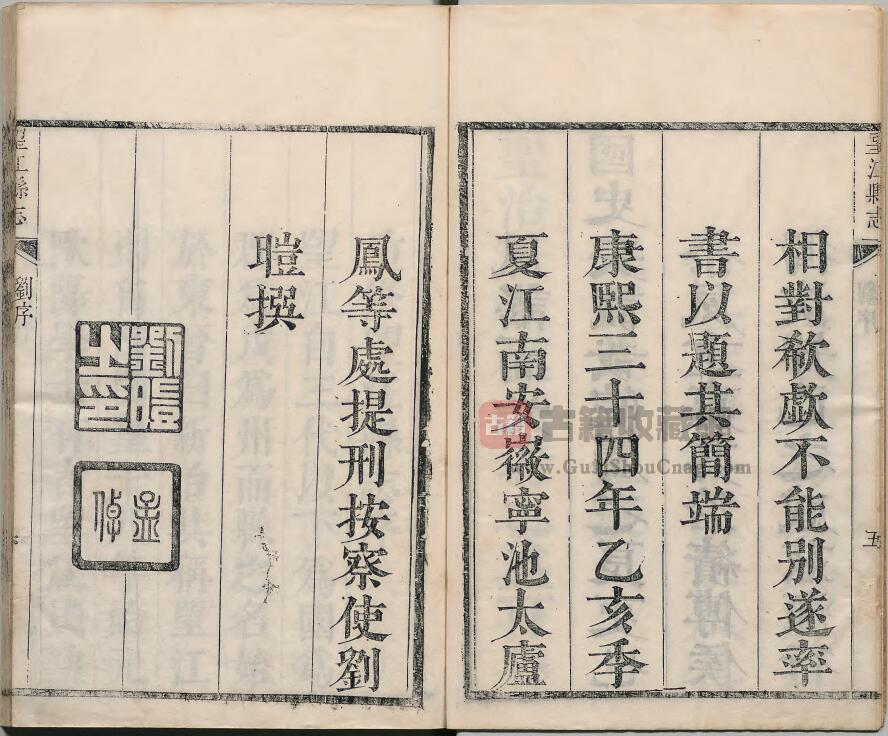 望江縣志
劉序
五
相對欷歔不能别遂率
書以題其簡端
康熙三十四年乙亥季
夏江南安薇寧池太廬
鳳等處提刑按察使劉
暟撰
劉暟之印
望江縣志
劉序
古籍收藏